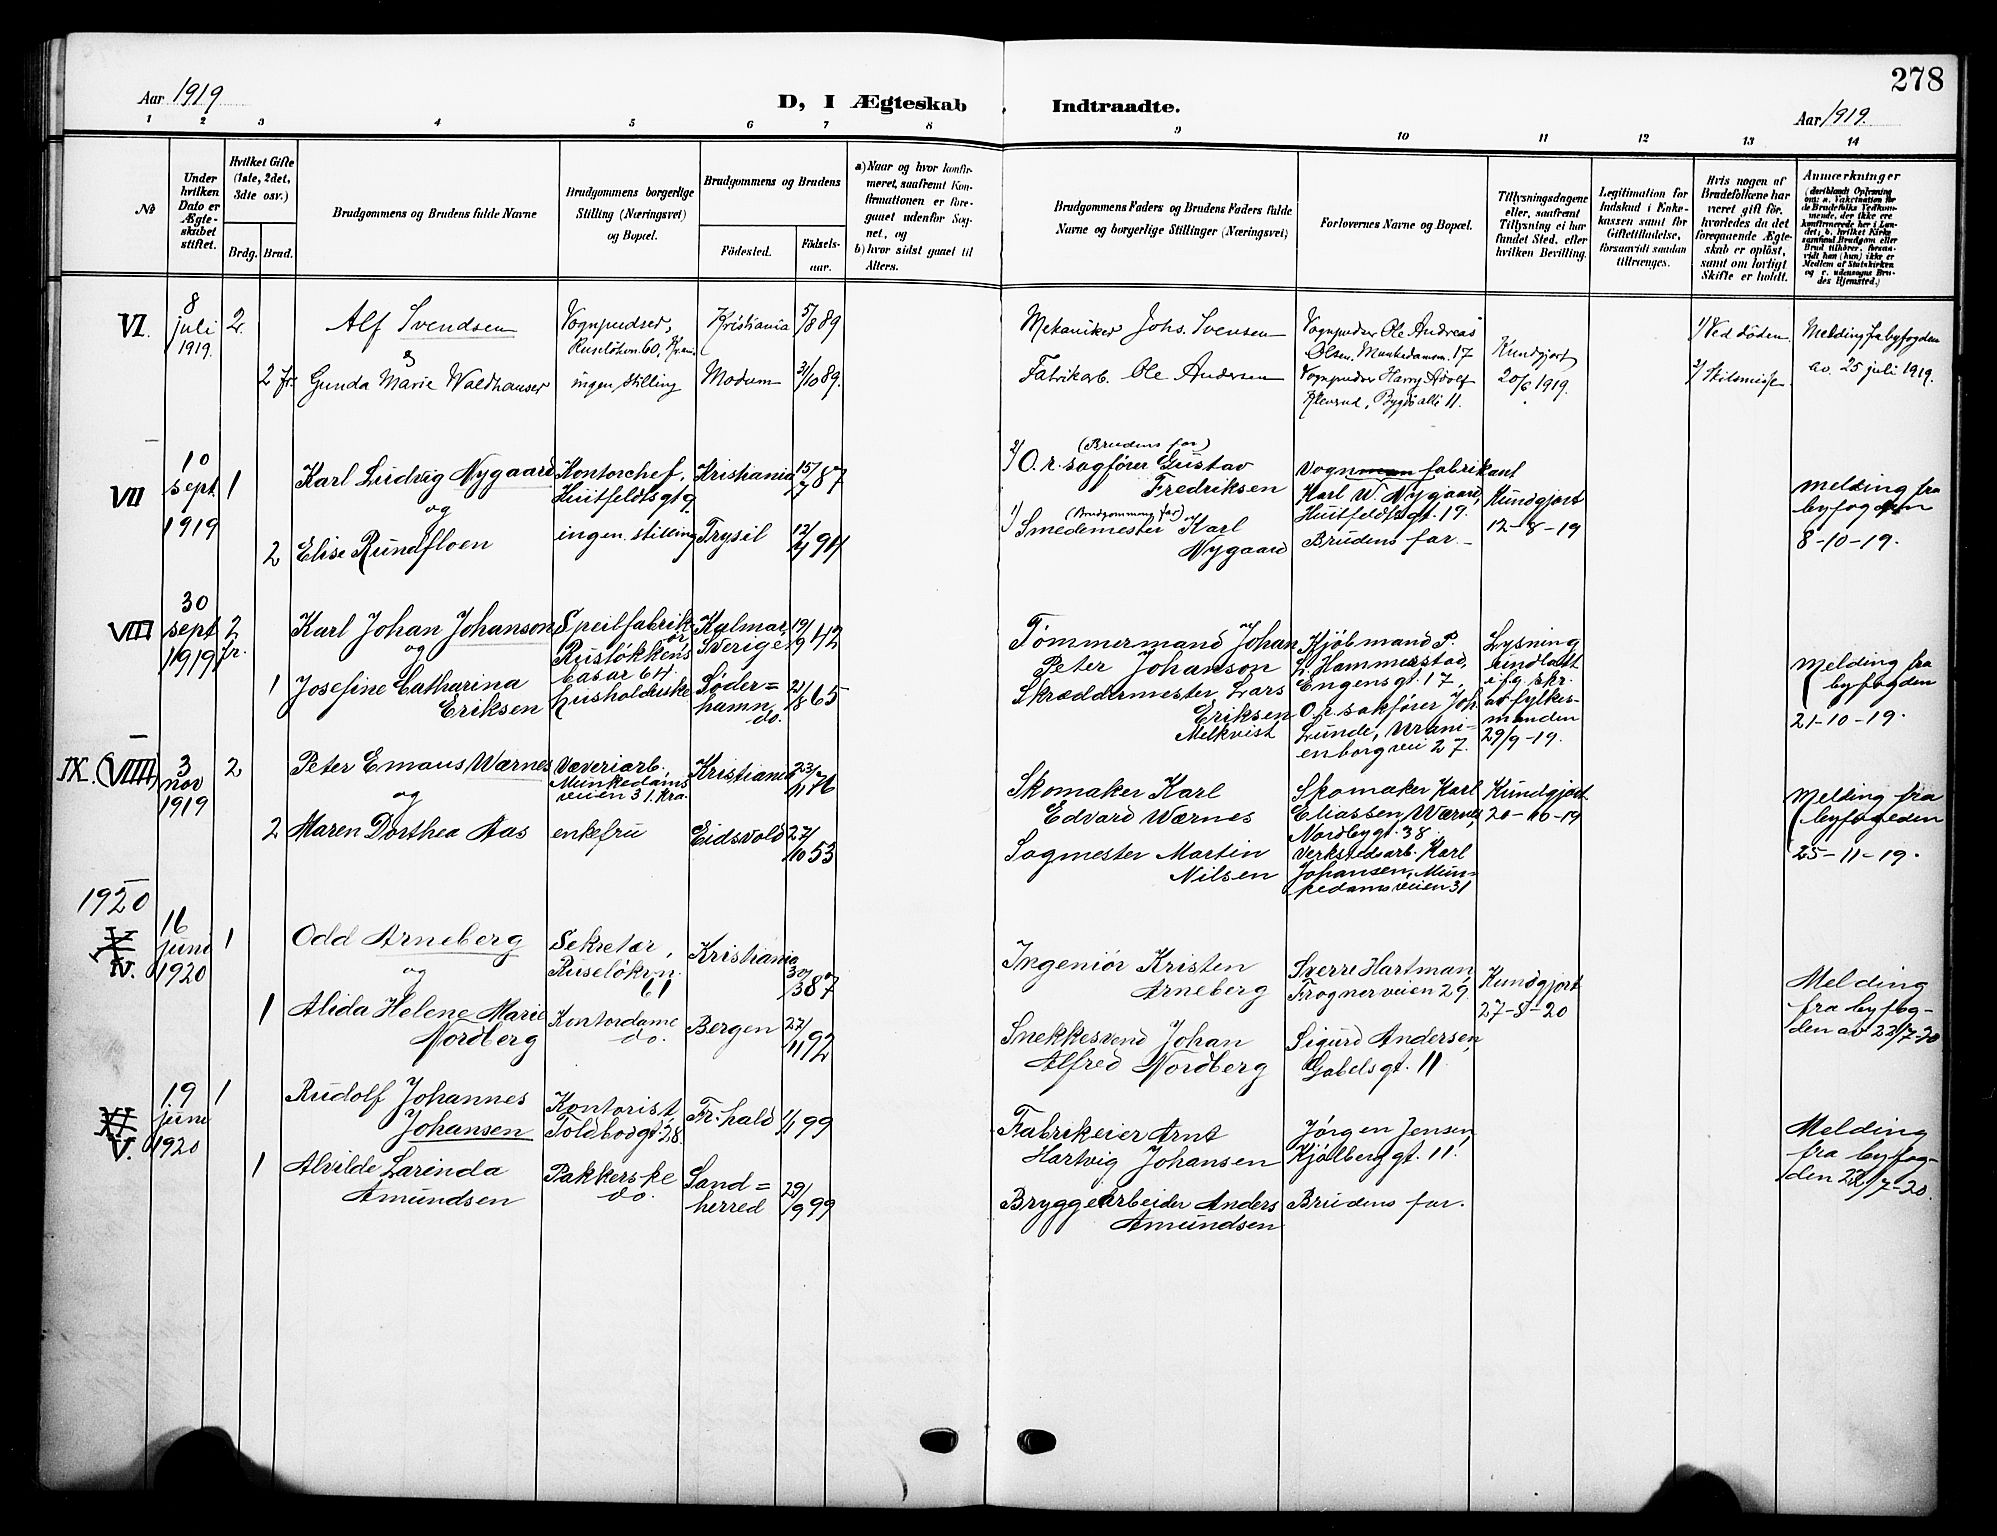 278
Aar 1919
D, I Ægteskab
Indtraadte.
Aar 1919.
1 2 3 4 5 6 7 8 9 10 11 12 13 14
№
Under hvilken Dato er Ægteskabet stiftet.
Hvilket Gifte (1ste, 2det, 3dte osv.)
Brdg. Brud.
Brudgommens og Brudens fulde Navne
Brudgommens borgerlige Stilling (Næringsvei) og Bopæl.
Brudgommens og Brudens
Födested.
Födselsaar.
a) Naar og hvor konfirmeret, saafremt Konfirmationen er foregaaet udenför Sognet, og
b) hvor sidst gaaet til Alters.
Brudgommens Faders og Brudens Faders fulde Navne og borgerlige Stillinger (Næringsvei)
Forlovernes Navne og Bopæl.
Tillysningsdagene eller, saafremt Tillysning ei har fundet Sted, efter hvilken Bevilling.
Legitimation for Indskud i Enkekassen samt for Giftetilladelse, forsaavidt saadan tiltrænges.
Hvis nogen af Brudefolkene har været gift för, hvorledes da det foregaaende Ægteskab er oplöst, samt om lovligt Skifte er holdt.
Anmærkninger
(deriblandt Oplysning om: a. Vaksination for de Brudefolks Vedkommende, der ikke ere konfirmerede her i Landet; b. hvilket Kirkesamfund Brudgom eller Brud tilhörer, forsaavidt han (hun) ikke er Medlem af Statskirken og c. udensogns Brudes Hjemsted.)
VI.
8 juli 1919.
2.
Alf Svendsen
&
Vognpudser,
Ruseløkvn. 60, Kr.ania
Kristiania
5/8 89
Mekaniker Johs. Svensen
Vognpudser Ole Andreas
Olsen, Munkedamsv. 17
Kundgjort
20/6 1919.
1/ Ved døden
Melding fra byfogden
av. 25 juli 1919.
2 fr.
Gunda Marie Waldhauser
ingen stilling
Modum
31/10 89.
Fabrikarb. Ole Andersen
Vognpudser Harry Adolf
Klevrud, Bygdø allé 11.
2/ Skilsmisse
VII
10 sept 1919
1
Karl Ludvig Nygaard
og
Kontorchef,
Huitfeldtsgt 9
Kristiania
15/7 87
2/ (Brudens far)
O.r. sagfører Gustav
Fredriksen
Vognmann fabrikant
Karl W. Nygaard,
Huitfeldtsgt. 19.
Kundgjort
12-8-19
melding fra
byfogden
8-10-19.
2
Elise Rundfloen
ingen. stilling
Trysil
12/4 94
1/ (Brudgommens far)
Smedemester Karl
Nygaard
Brudens far.-
VIII
30 sept 1919
2 fr.
Karl Johan Johanson
og
Speilfabrikør
Ruseløkkens
basar 64
Kalmar,
Sverige
19/9 42
Tømmermand Johan
Peter Johanson
Kjøbmand P.
L. Hammerstad,
Engens gt. 17
Lysning
undlatt
i.f.g. skr.
av fylkesmanden
29/9-19.
Melding fra
byfogden
21-10-19.
1
Josefine Catharina
Eriksen
husholderske
Søderhamn,
do.
21/8 65
Skræddermester Lars
Eriksen
Melkvist
O.r. sakfører Joh.
Lunde, Uranienborgvei 27.
IX. (VIIII)
3 nov 1919
2
Peter Emaus Wærnes
og
Væveriarb.
Munkedamsveien 31. Kra.
Kristiania
23/11 76
Skomaker Karl
Edvard Wærnes
Skomaker Karl
Eliassen Wærnes,
Nordbygt. 38.
Kundgjort
20-10-19
Melding fra
byfogden
25-11-19.
2
Maren Dorthea Aas
enkefru
Eidsvold
27/10 53
Sagmester Martin
Nilsen
Verkstedsarb. Karl
Johansen, Munkedamsveien 31
1920
IV.
16 juni 1920
1
Odd Arneberg
og
Sekretær,
Ruseløkvn.
61
Kristiania
30/3 87
Ingeniør Kristen
Arneberg
Sverre Hartman,
Frognerveien 29
Kundgjort
27-5-20
Melding
fra byfogden av 23/7-20
1
Alida Helene Marie
Nordberg
Kontordame
do.
Bergen
27/11 92
Snekkesvend Johan
Alfred Nordberg
Sigurd Andersen,
Gabelsgt. 11
V.
19 juni 1920
1
Rudolf Johannes
Johansen
Kontorist,
Toldbodgt. 28
Fr.hald
1/1 99
Fabrikeier Arnt
Hartvig Johansen
Jørgen Jensen,
Kjølberggt. 11.
Melding
fra byfogden 22/7-20.
1
Alvilde Larinda
Amundsen
Pakkerske
do.
Sandherred
29/9 99
Bryggearbeider Anders
Amundsen
Brudens far.